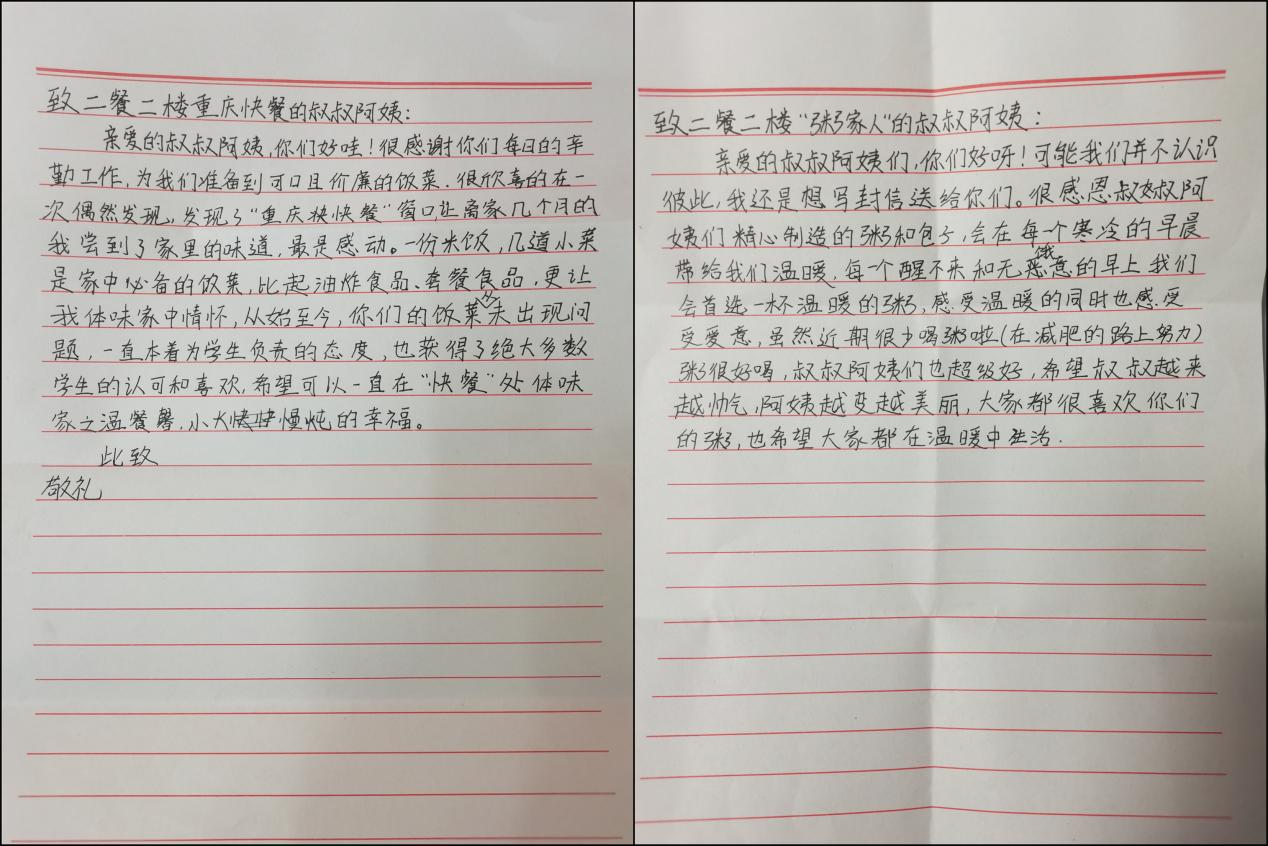 致二餐二楼重庆快餐的叔叔阿姨：
亲爱的叔叔阿姨，你们好哇！很感谢你们每日的辛
勤工作，为我们准备到可口且价廉的饭菜．很欣喜的在一
次偶然发现，发现了“重庆快餐”窗口，让离家几个月的
我尝到了家里的味道，最是感动。一份米饭，几道小菜
是家中必备的饭菜，比起油炸食品、套餐食品，更让
我体味家中情怀，从始至今，你们的饭菜从未出现问
题，一直本着为学生负责的态度，也获得了绝大多数
学生的认可和喜欢，希望可以一直在“快餐”处体味
家之温馨，小火慢炖的幸福。
此致
敬礼
致二餐二楼“粥家人”的叔叔阿姨：
亲爱的叔叔阿姨们，你们好呀！可能我们并不认识
彼此，我还是想写封信送给你们。很感恩叔叔阿
姨们精心制造的粥和包子，会在每一个寒冷的早晨
带给我们温暖，每一个醒不来和无饿意的早上我们
会首选一杯温暖的粥，感受温暖的同时也感受
受爱意，虽然近期很少喝粥啦（在减肥的路上努力）
粥很好喝，叔叔阿姨们也超级好，希望叔叔越来
越帅气，阿姨越变越美丽，大家都很喜欢你们
的粥，也希望大家都在温暖中生活．